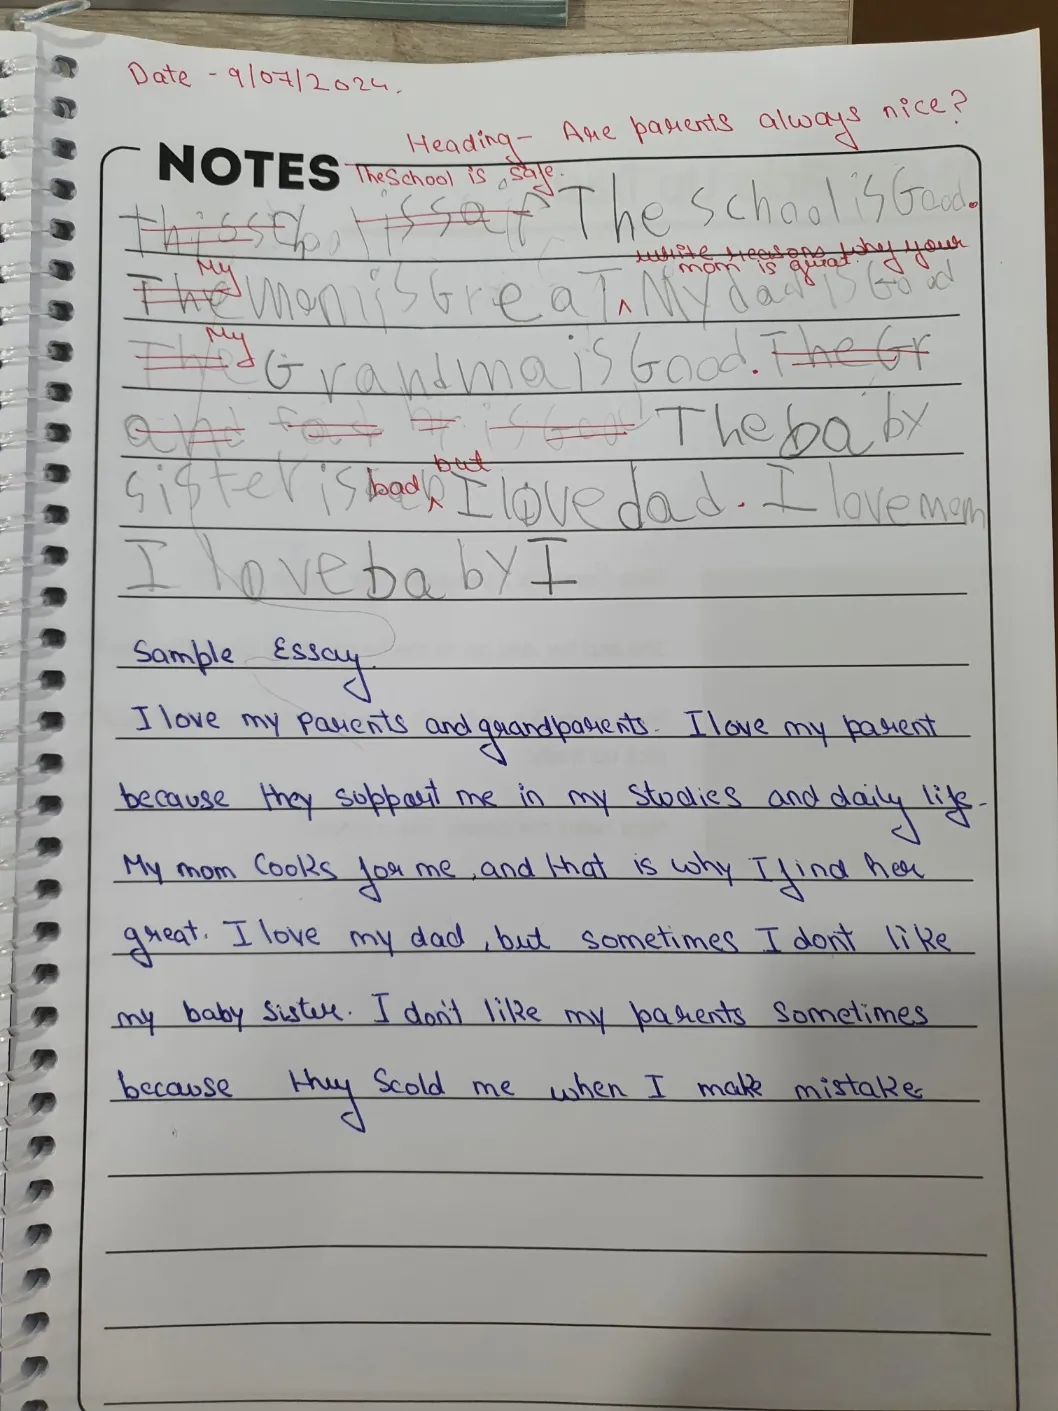 Date - 9/07/2024.
Heading - Are parents always nice?
NOTES
The School is safe.
thisschool issaf The school is Good.
write reasons why your
mom is great.
My
The Mom is GreaT ^ My dad is Good
My
The Grandma is Good. The Gr
and is Good The baby
but
sister is bad ^ I love dad. I love mom
I love baby I
Sample Essay.
I love my parents and grandparents. I love my parent
because they support me in my studies and daily life.
My mom cooks for me, and that is why I find her
great. I love my dad, but sometimes I dont like
my baby sister. I don't like my parents sometimes
because they scold me when I make mistake